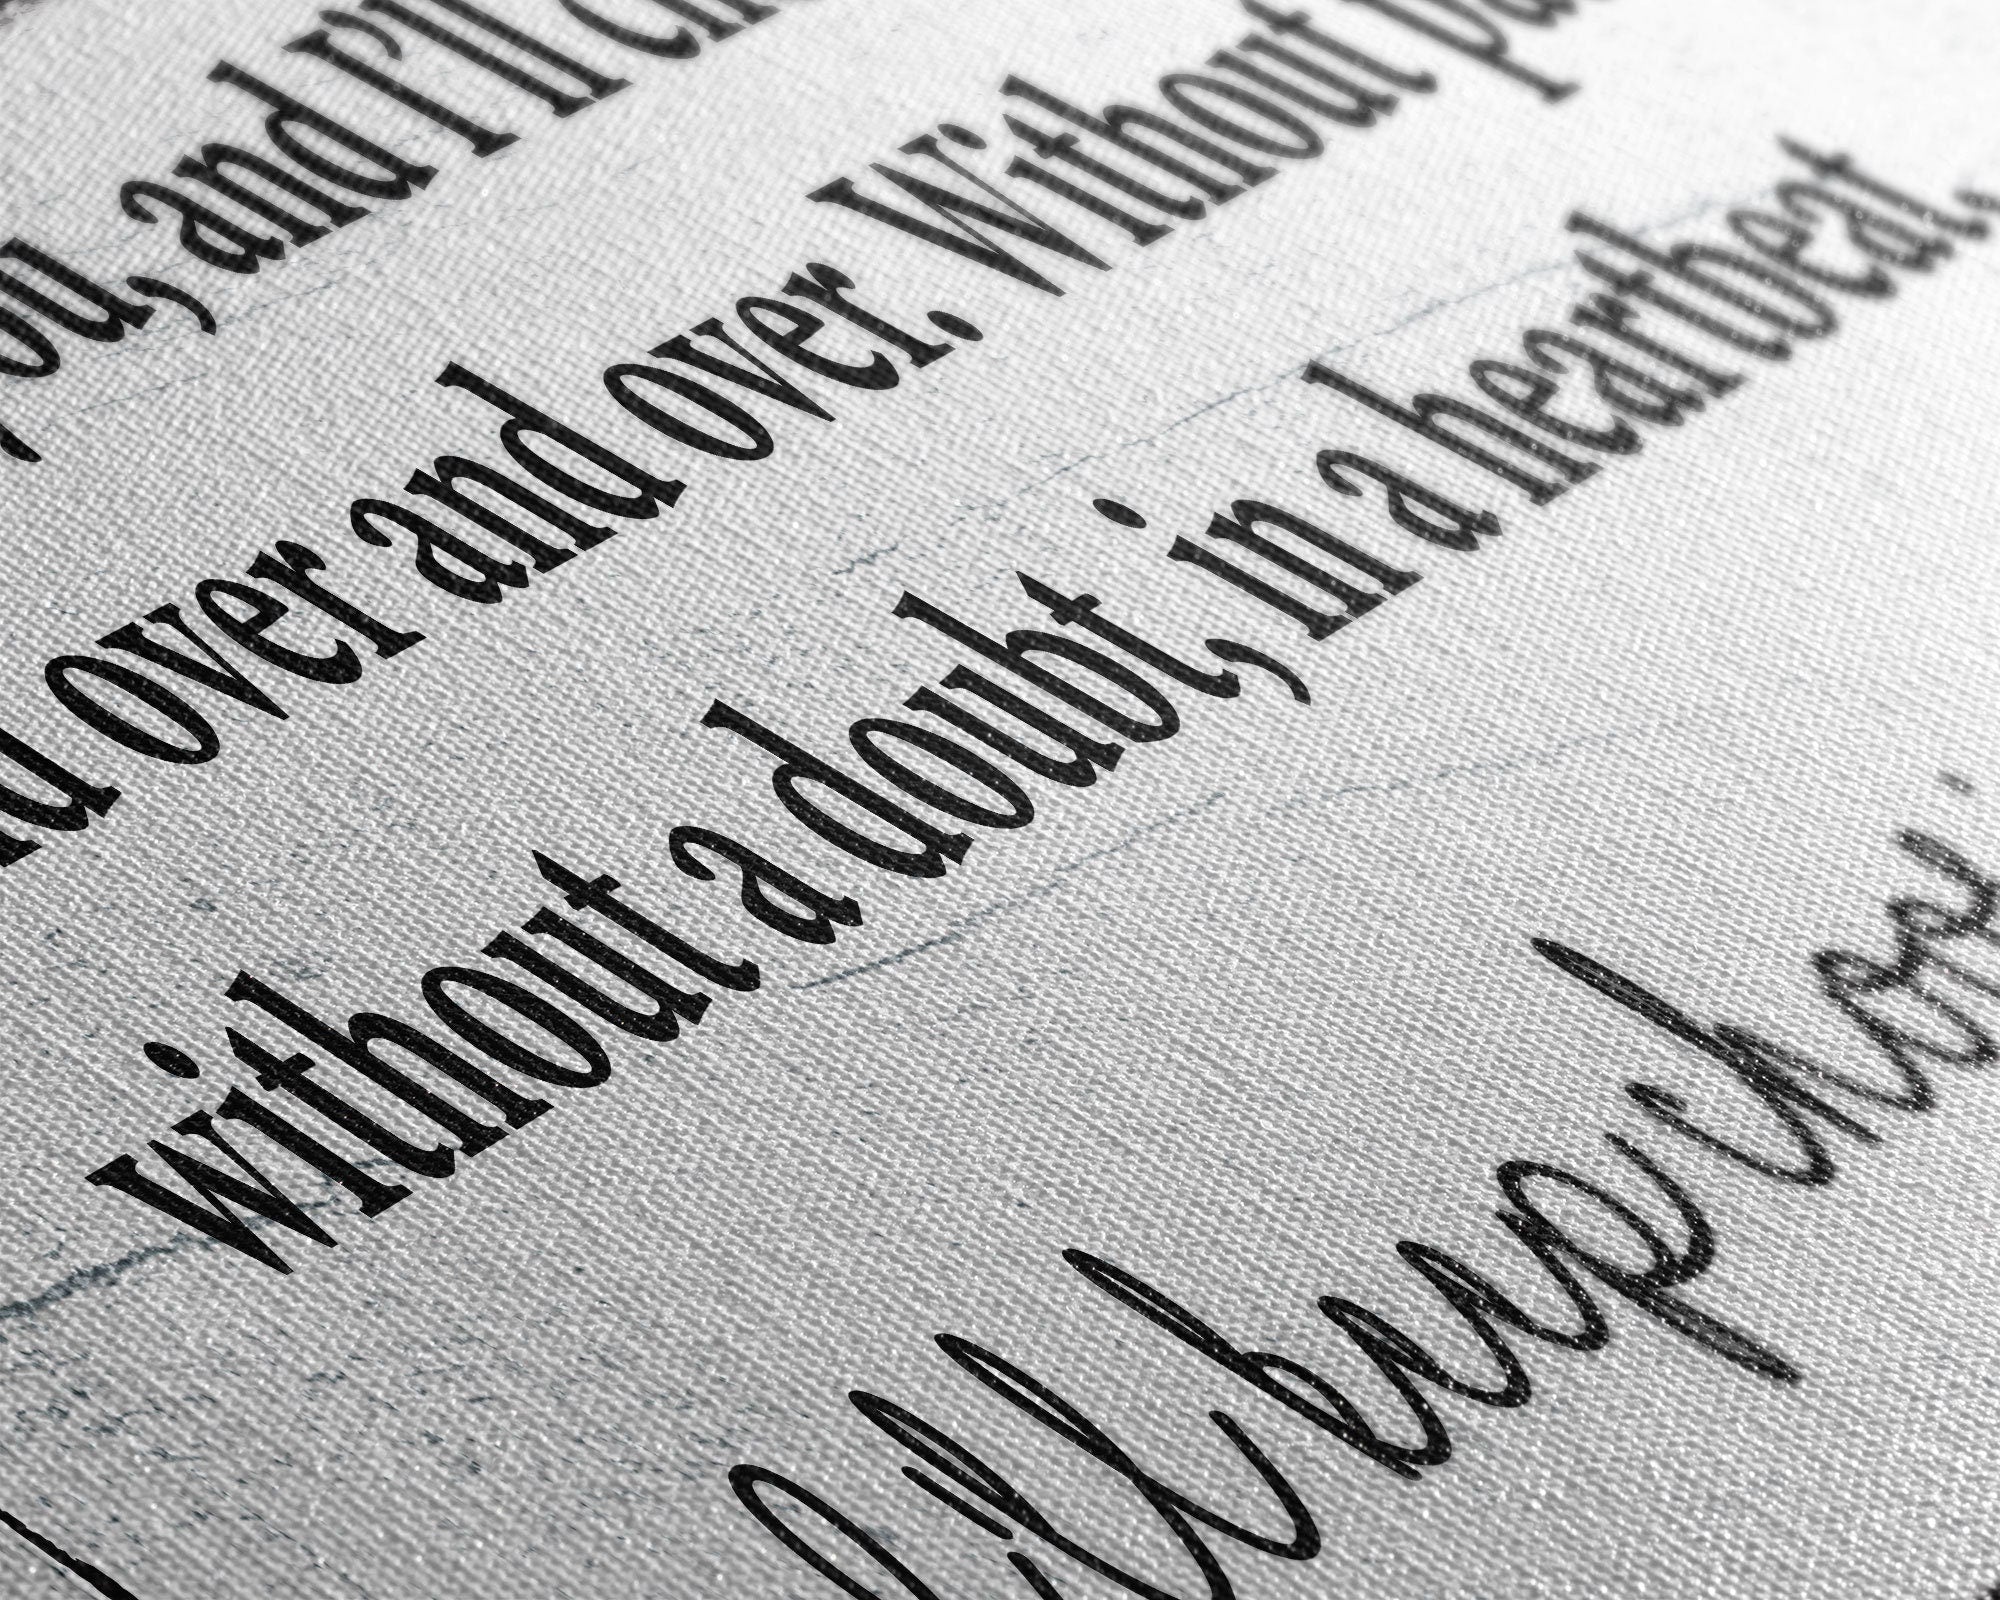 ou, and I'll ch
nd over and over. Without pa
without a doubt, in a heartbeat.
I'll keep choosi